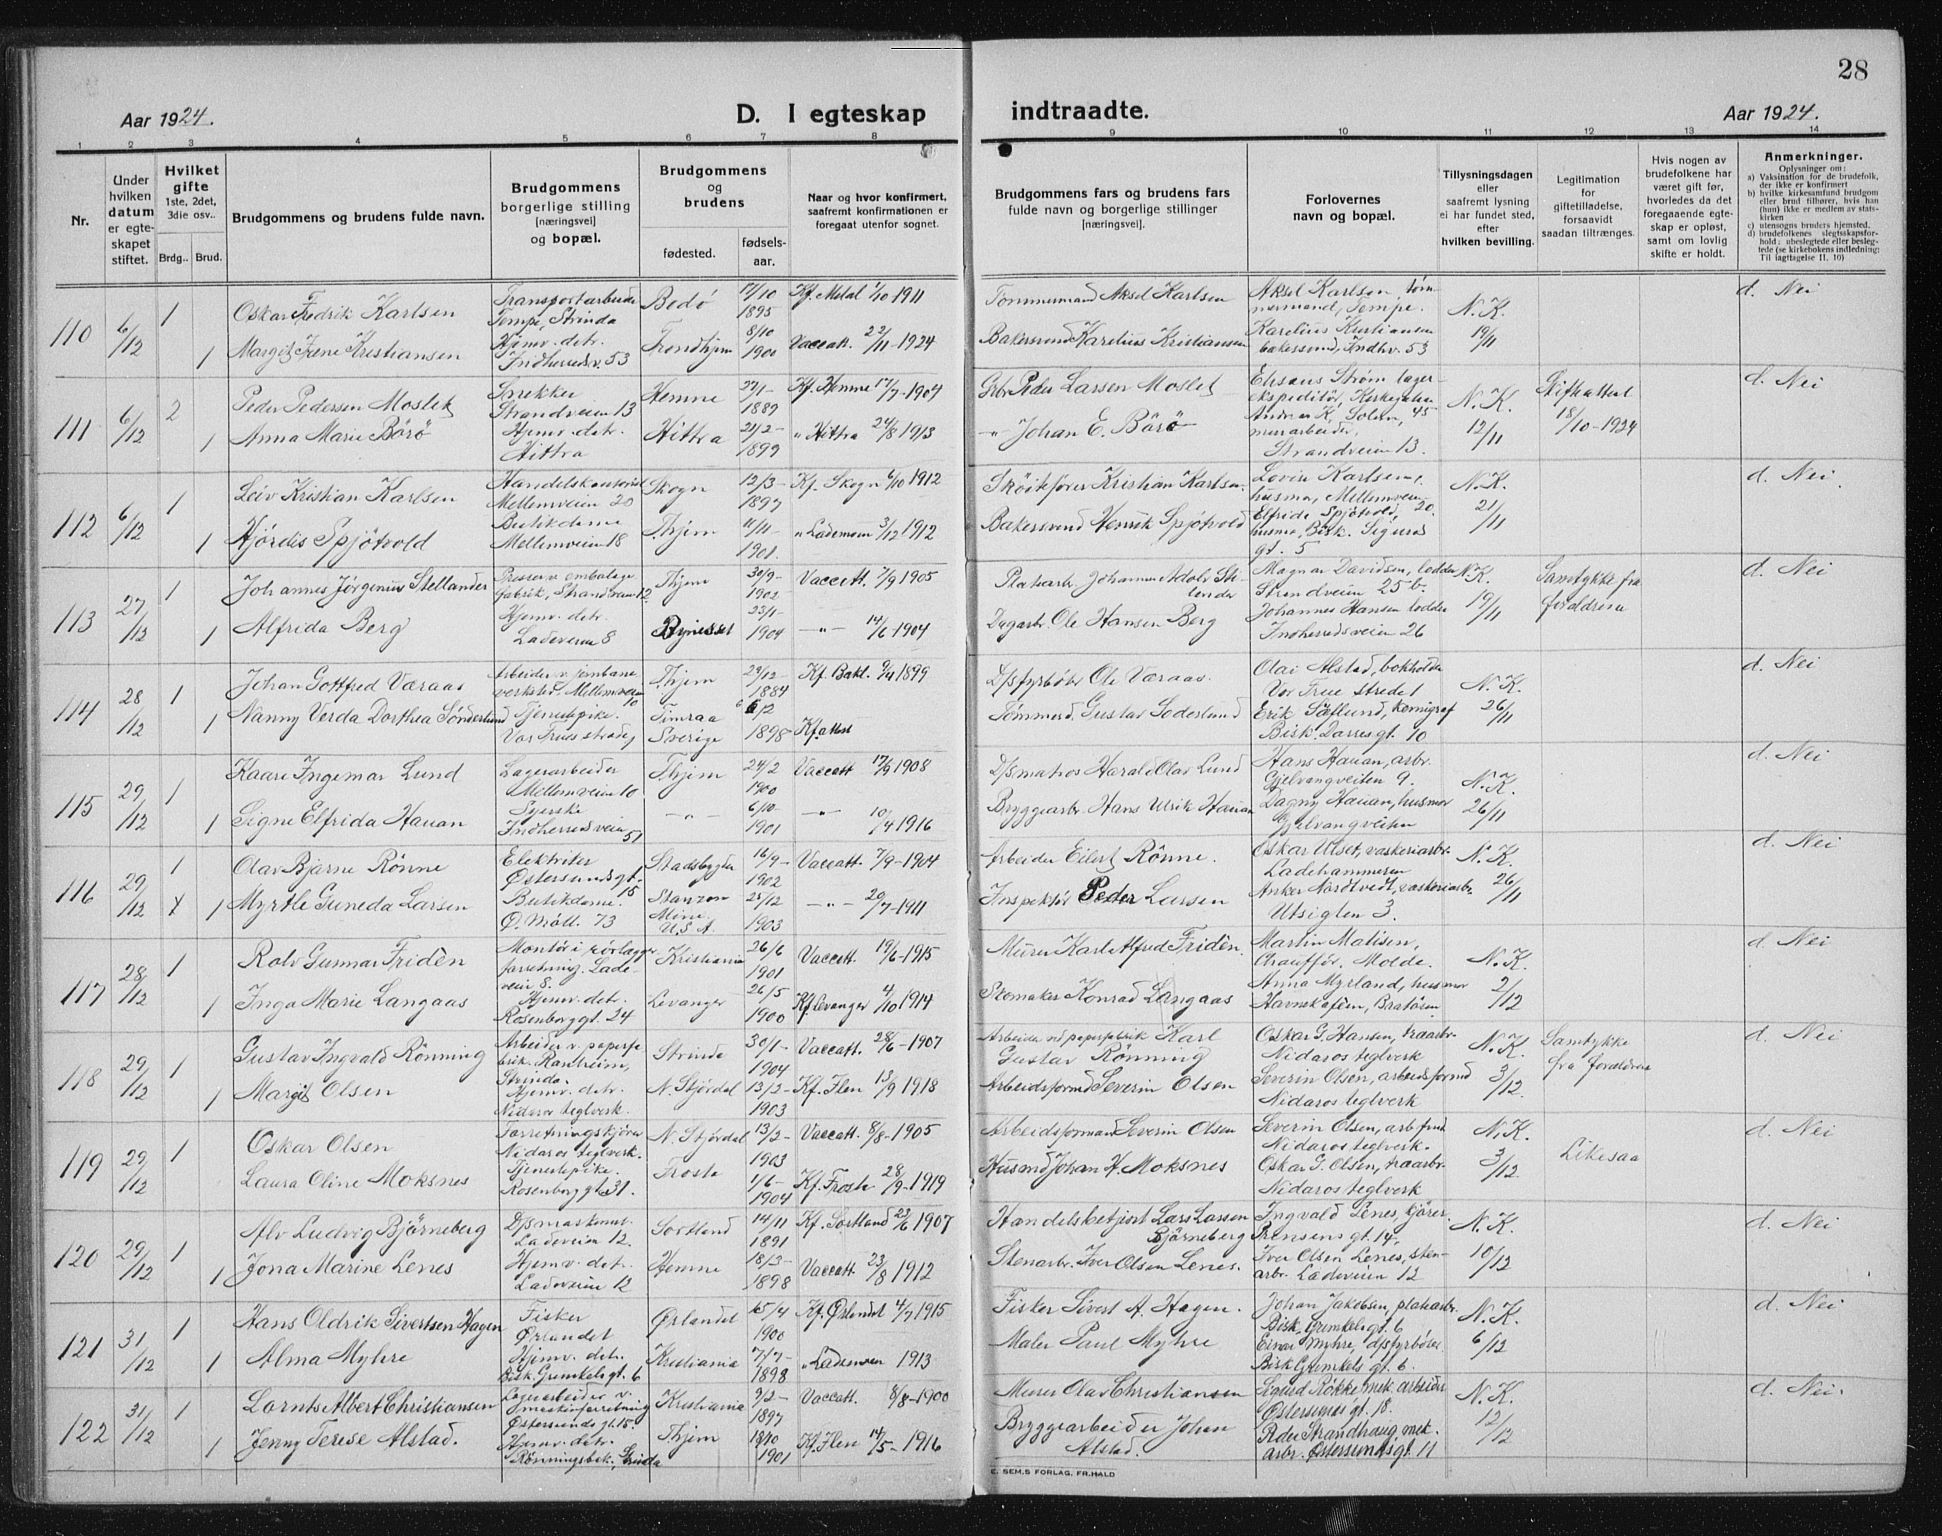 28
Aar 1924.
D. I egteskap
indtraadte.
Aar 1924.
1 2 3 4 5 6 7 8 9 10 11 12 13 14
Nr.
Under hvilken datum er egteskapet stiftet.
Hvilket gifte 1ste, 2det, 3die osv..
Brdg.. Brud.
Brudgommens og brudens fulde navn.
Brudgommens borgerlige stilling [næringsvei] og bopæl.
Brudgommens og brudens
fødested.
fødselsaar.
Naar og hvor konfirmert, saafremt konfirmationen er foregaat utenfor sognet.
Brudgommens fars og brudens fars fulde navn og borgerlige stillinger [næringsvei].
Forlovernes navn og bopæl.
Tillysningsdagen eller saafremt lysning ei har fundet sted, efter hvilken bevilling.
Legitimation for giftetilladelse, forsaavidt saadan tiltrænges.
Hvis nogen av brudefolkene har været gift før, hvorledes da det foregaaende egteskap er opløst, samt om lovlig skifte er holdt.
Anmerkninger.
Oplysninger om:
a) Vaksination for de brudefolk, der ikke er konfirmert
b) hvilke kirkesamfund brudgom eller brud tilhører, hvis han (hun) ikke er medlem av statskirken
c) utensogns brudens hjemsted.
d) brudefolkenes slegtsskapsforhold: ubeslegtede eller beslegtede (se kirkebokens indledning: Til iagttagelse 11, 10)
110 6/12 1 Oskar Fredrik Karlsen Transportarbeider Tempe, Strinda Bodö 17/10 1895 Kf. Melal 1/10 1911 Tømmermand Aksel Karlsen Aksel Karlsen, tømmermand, Tempe. N.K. 19/11 d. Nei
1 Margit Irene Kristiansen Hjemv. dtr. Indherredsv. 53 Trondhjem 8/10 1900 Vaccatt. 22/11-1924 Bakersvend Karelius Kristiansen Karelius Kristiansen bakersvend, Indhv. 53
111 6/12 2 Peder Pedersen Moslet Snekker Strandveien 13 Hemne 1889 Kf. Hemne 17/7-1904 Grbr. Peder Larsen Moslet Strøm lagerekspeditør, N.K. 12/11 Skifteattest 18/10-1924 d. Nei
1 Anna Marie Börö Hjemv. dtr. Hittra Hittra 21/2- 1899 " Hittra 24/8 1913 -"- Johan E. Börö Andreas K. Solem, 45 Strandveien 13.
112 6/12 1 Leiv Kristian Karlsen Handelskontorist Mellemveien 20 Skogn 12/3- 1897 Kf. Skogn 6/10 1912 Sköitfører Kristian Karlsen. Lovise Karlsen, husmor, Mellemveien 20. N.K. 21/11 d. Nei
1 Hjördis Spjötvold Butikdame Mellemveien 18 Thjem 11/11- 1901. " Lademoen 3/12 1912 Bakersvend Henrik Spjötvold Elfride Spjötvold, husmor, Bisk. Sigurds gt. 5
113 27/12 1 Johannes Jørgenius Stellander Strandveien 12 Thjem 30/9- 1902 Vaccatt. 7/9 1905 Platearb. Johannes Adolf Stellander Magnar Davidsen, lodder Strandveien 25 b. N.K. 19/11 Samtykke fra foraldrene d. Nei
1 Alfrida Berg Hjemv. dtr. Ladeveien 8 Bynesset 23/1- 1904 -"- 14/6 1904 Dagarb. Ole Hansen Berg Johannes Hansen lodder Indherredsveien 26
114 28/12 1 Johan Gottfred Væraas Arbeider v. jernbaneverksted. Mellemveien 10 Thjem 29/12- 1884 Kf. Bakl. 9/4 1899 D/sfyrbøt. Ole Væraas. Olai Alstad, bokholder Vor Frue strede 1 N.K. 26/11 d. Nei
1 Nanny Verda Dorthea Sönderlund Tjenestepike. Vor Frues strede 1 Timraa Sverige 6/2 1898 Kf.attest Tømmerd. Gustav Soderlund Erik Söflund, kemigraf Bisk. Darres gt. 10
115 29/12 1 Kaare Ingemar Lund Lagerarbeider Mellemveien 10 Thjem 24/2 1900 Vaccatt 17/9 1908 D/smatros Harald Olav Lund Hans Hauan, arbr. Gjelvangveiten 9. N.K. 26/11 d. Nei
1 Signe Elfrida Hauan Syerske Indherredsveien 51 -"- 6/10- 1901 -"- 10/4 1916 Bryggearbr. Hans Ulrik Hauan Dagny Hauan, husmor Gjelvangveiten
116 29/12 1 Olav Bjarne Rönne Elektriker Östersundsgt. 15 Stadsbygden 16/9- 1902 Vaccatt. 7/9-1904 Arbeider Eilert Rönne. Oskar Ulset, vaskeriarbr. Ladehammeren N.K. 26/11 d. Nei
1 Myrtle Guneda Larsen Butikdame. Ö. Möll. 73 Stanzon Mine U.S.A. 25/12 1903 -"- 20/7-1911 Inspektør Peder Larsen Anker Nordtvedt, vaskeriarbr. Utsigten 3.
117 28/12 1 Rolv Gunnar Fridèn Montör i rörlæggerforretning. Ladeveien 8. Kristiania 26/6 1901 Vaccatt. 19/6-1915 Murer Karl Alfred Fridèn. Martin Malisen, Chauffør. Molde. N.K. 2/12 d. Nei
1 Inga Marie Langaas Hjemv. dtr. Rosenborg gt. 24 Levanger 26/5 1900 Kf. Levanger 4/10 1914 Skomaker Konrad Langaas Anna Myrland, husmor Havnekafèen, Bratören
118 29/12 1 Gustav Ingvald Rönning Arbeider v. papirfabrik. Ranheim, Strinda. Strinda 30/1- 1904 Vaccatt. 28/6-1907 Arbeider ved papirfabrik Karl Gustav Rönning Oskar G. Hansen, træarbr. Nidaros teglverk N.K. 3/12 Samtykke fra foraldrene d. Nei
1 Margit Olsen Hjemv. dtr. Nidaros teglverk. N. Stjördal 13/2- 1903 Kf. Ilen 13/9 1918 Arbeidsformd Severin Olsen Severin Olsen, arbeidsformd Nidaros teglverk
119 29/12 1 Oskar Olsen Forretningskjörer Nidaros teglverk. N. Stjördal 13/2- 1903 Vaccatt. 8/8-1905 Arbeidsformand Severin Olsen Severin Olsen, arb.fmd Nidaros teglverk. N.K. 3/12 Likesaa d. Nei
Laura Oline Moksnes Tjenestepike. Rosenborg gt. 31. Frosta 1/6- 1904 Kf. Frosta 28/9-1919 Husmd Johan H. Moksnes Oskar G. Olsen, træarbr. Nidaros teglverk
120 29/12 1 Alv Ludvig Björneberg D/smaskinist Ladeveien 12. Sortland 14/11 1891 Kf. Sortland 23/6 1907 Handelsbetjent Lars Larsen Björneberg Ingvald Lenes, kjörer Prinsens gt. 14, N.K. 10/12 d. Nei
1 Jona Marine Lenes Hjemv. dtr. Ladeveien 12 Hemne 18/3- 1898 Vaccatt. 23/8 1912 Stenarbr. Iver Olsen Lenes. Iver Olsen Lenes, stenarbr. Ladeveien 12
121 31/12 1 Hans Oldrik Sivertsen Hagen Fisker Ørlandet Ørlandet 1900 Kf. Ørlandet 4/7 1915 Fisker Sivert A. Hagen. Johan Jakobsen, platearbr. Bisk. Grimkels gt. 6 N.K. 6/12 d. Nei
1 Alma Myhre Hjemv. dtr. Bisk. Grimkels gt. 6 Kristiania 7/7- 1898 " Lademoen 1913 Maler Paul Myhre Einar Myhre, d/sfyrböter Bisk Grimkels gt. 6.
122 31/12 1 Lornts Albert Christiansen Lagerarbeider v. maskinforretning Östersunds gt. 15. Kristiania 9/2- 1897 Vaccatt. 8/8-1900 Murer Olav Christiansen Sigurd Røkke mek. arbeider Östersunds gt. 18. N.K. 12/12 d. Nei.
1 Jenny Terese Alstad. Hjemv. detr. Rönningsbek., Strinda Thjem 18/10 1901 Kf. Ilen 14/5-1916 Bryggearbeider Johan Alstad. Peder Strandhaug, mek. arbr. Östersunds gt. 11
E. SEM.S FORLAG, FR.HALD